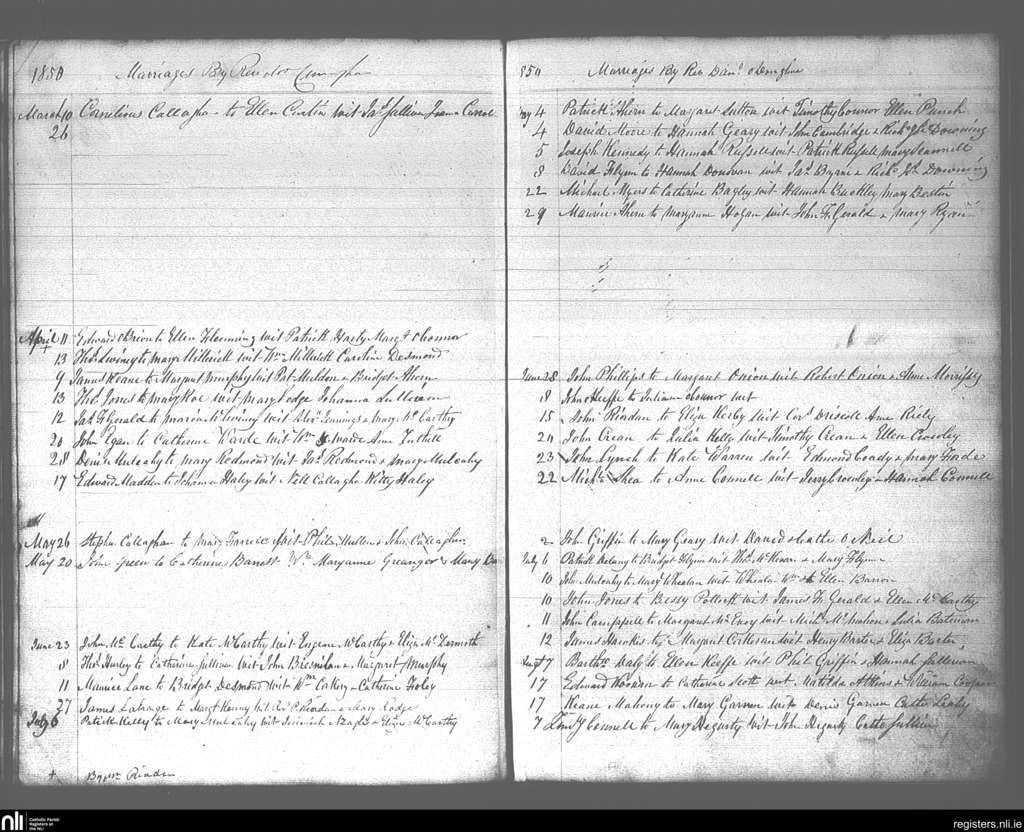 1850 Marriages By Rev
March 10 Cornelius Callaghan to Ellen Curtin wit Jas Sullivan Joana Carrol
26
April 11 Edward OBrien to Ellen Flemming wit Patrick Harty Margt OConnor
13 Thos to Mary Millerick wit Wm Millerick Caroline Desmond
9 James Keane to Margaret Murphy wit Pat Muldon & Bridget Ahern
13 Thos Jones to Mary Roe wit Mary Lodge Johanna Sullivan
12 Jas FzGerald to Maria wit Jennings & Mary McCarthy
20 John Egan to Catherine Warde wit Wm Warde Anne Tuthill
28 Denis Mulcahy to Mary Redmond wit Jas Redmond & Mary Mulcahy
17 Edward Madden to Johana Haly wit Nell Callaghn Kitty Haly
May 26 Stephen Callaghan to Mary wit Mullen & John Callaghan
May 20 John Green to Catherine Barrett Wit Maryanne Greanger & Mary
June 23 John McCarthy to Kate McCarthy wit Eugene McCarthy & Eliza McDermoth
8 Thos Hurley to Catherine Sullivan wit John & Margaret Murphy
11 Maurice Lane to Bridget Desmond wit Wm Corkery Catherine Foley
27 James to Margt Kenny wit Revd Riordan & Mary Lodge
July 6 Patrick Kelly to Mary wit Jeremiah & Eliza McCarthy
+ By Riordan
850 Marriages By Rev Danl ODonoghue
May 4 Patrick Ahern to Margaret Sutton wit Timothy Connor Ellen
4 David Moore to Hannah Geary wit John Cambridge & Richd Downing
5 Joseph Kennedy to Hannah Russell wit Patrick Russell Mary Scannell
8 David Flynn to Hannah Donovan wit Jas Byrne & Richd Downing
22 Michael Myers to Catherine Bagley wit Hannah Buckley Mary
29 Maurice Ahern to Maryanne Hogan wit John FzGerald & Mary Ryan
June 28 John Phillips to Margaret Onion wit Robert Onion & Anne Morrissy
8 John Keeffe to Juliana Connor wit
15 John Riordan to Eliza Kerby wit Cors Driscoll Ane Riely
20 John Crean to Julia Kelly wit Timothy Crean & Ellen Crowley
23 John Lynch to Kate Warren wit Edmond Coady & Mary Forde
22 Michl Shea to Anne Connell wit Jerry Crowley & Hannah Connell
2 Joh Griffin to Mary Geary wit Daniel & Cathe ONeil
July 6 Patrick Delany to Bridget Flynn wit Thos & Mary Flynn
10 John Mulcahy to Mary Whealan wit Whealan Wm & Ellen Barron
10 John Jones to Bessy Pollock wit James FzGerald & Ellen McCarthy
11 John to Margaret McEvoy wit Michl McMahon & Julia Bateman
12 James Hawkes to Margaret wit Henry Baster & Eliza Baster
Augt 7 Barthw Daly to Ellen Keeffe wit Phil Griffin & Hannah Sullivan
17 Edmund Noonan to Catherine Scott wit Matilda Atkins & William Cooper
17 Keane Mahony to Mary Garven wit Denis Garven Cathe Leahy
7 Connell to Mary Hegarty wit John Hegarty Cathe Sullivan
nli Catholic Parish
Registers at
the NLI
registers.nli.ie